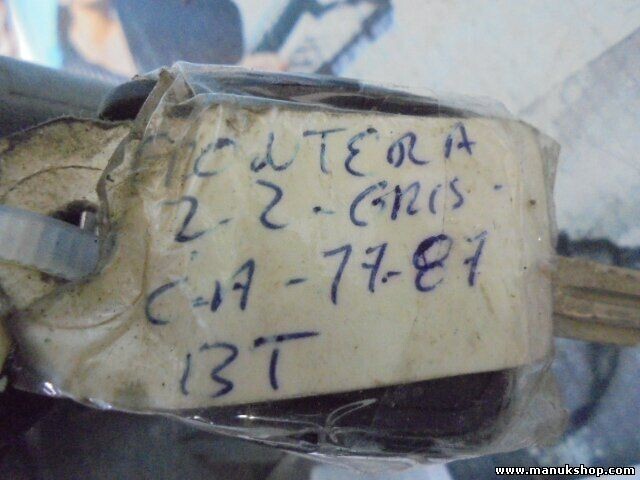 MONTERA
2-2-GRIS-
C-A-77-87
BT
www.manukshop.com